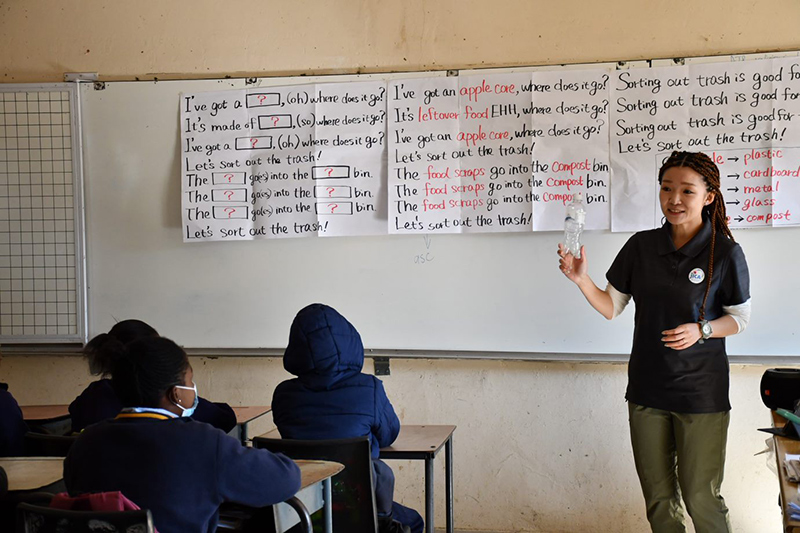 I've got a ?, (oh) where does it go?
It's made of ?, (so) where does it go?
I've got a ?, (oh) where does it go?
Let's sort out the trash!
The ? go(es) into the ? bin.
The ? go(es) into the ? bin.
The ? go(es) into the ? bin.
Let's sort out the trash!
I've got an apple core, where does it go?
It's leftover food EHH, where does it go?
I've got an apple core, where does it go?
Let's sort out the trash!
The food scraps go into the compost bin.
The food scraps go into the compost bin.
The food scraps go into the compost bin.
Let's sort out the trash!
asc
Sorting out Trash is Good fo
Sorting out trash is good for
Sorting out trash is good for
Let's sort out the trash!
→ plastic
→ cardboard
→ metal
→ glass
→ compost